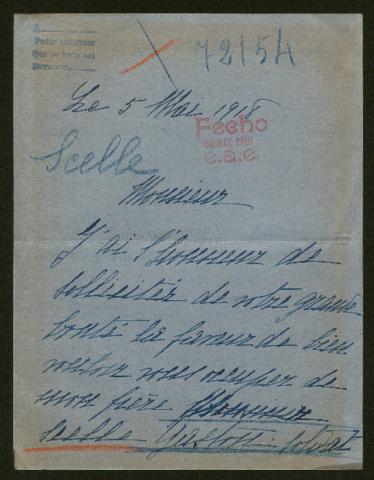 A
Pedir informes
Que se hace así
72154
Le 5 Mai 1918
Fecho
MAY. 1918
c.a.e.
Scelle
Monsieur
J'ai l'honneur de
solliciter de votre grande
bonté la faveur de bien
vouloir vous occuper de
mon frère Monsieur
Scelle Gaston: soldat